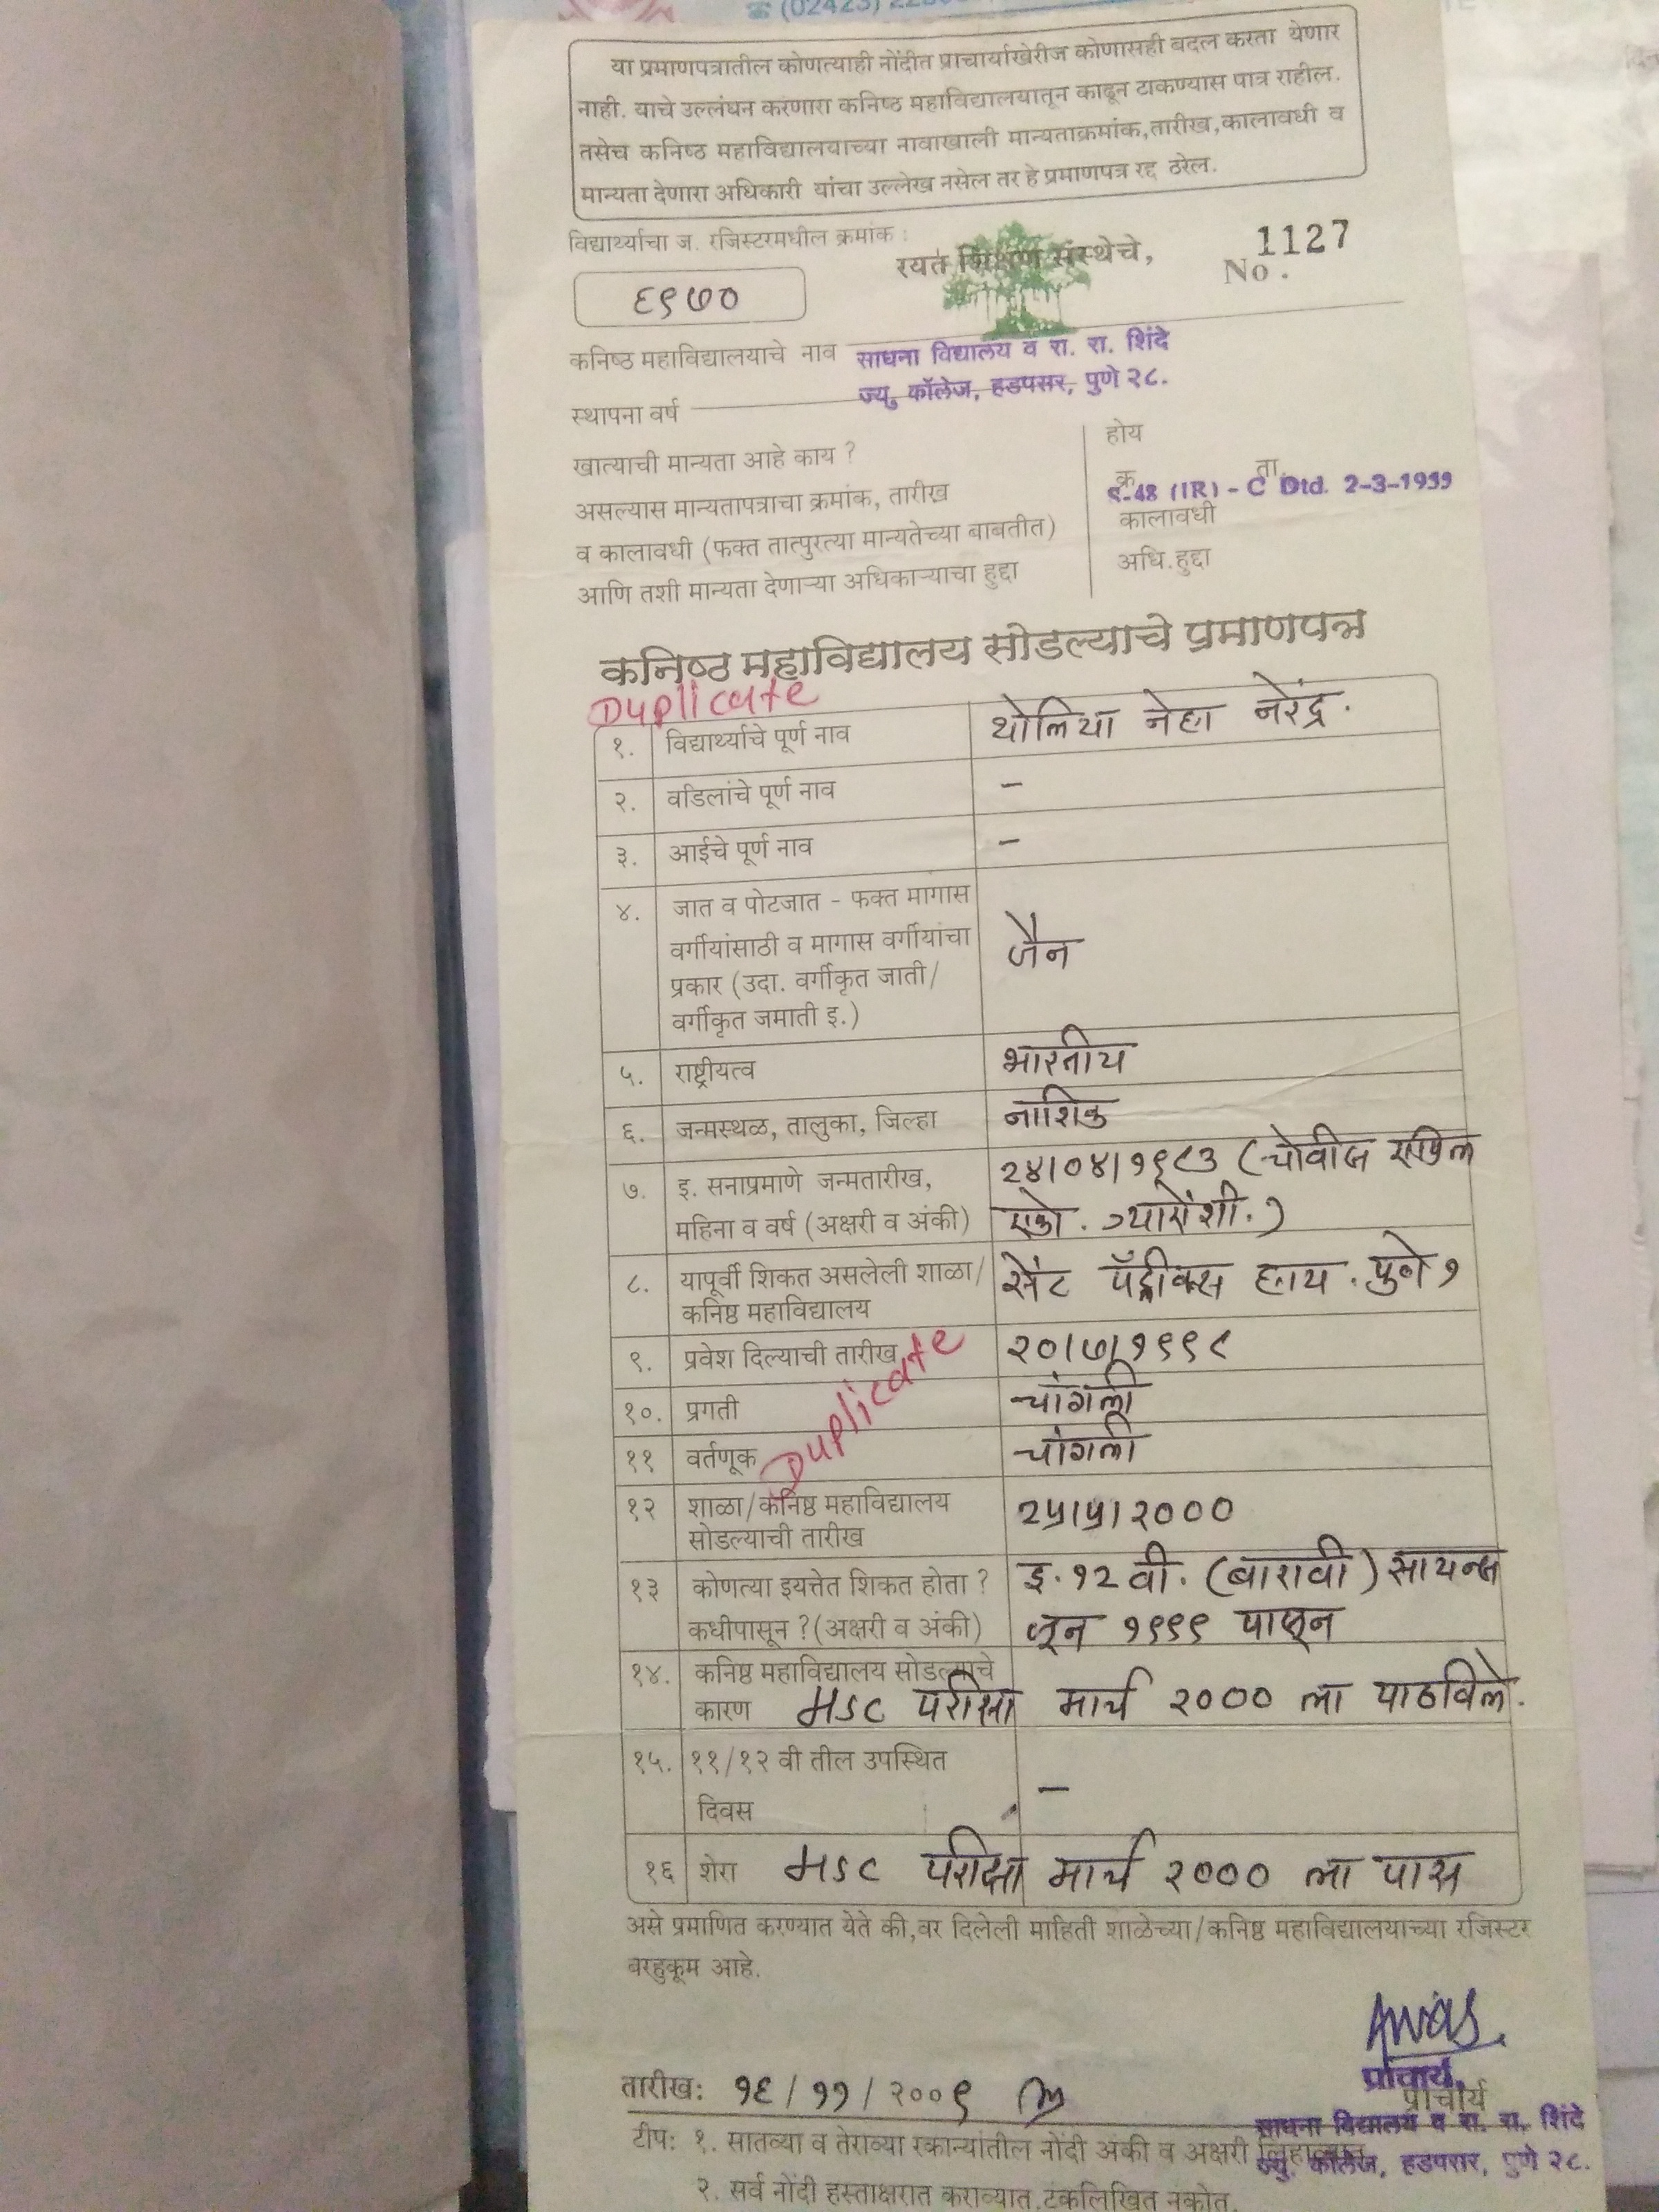 या प्रमाणपत्रातील कोणत्याही नोंदीत प्राचार्याखेरीज कोणासही बदल करता येणार
नाही. याचे उल्लंघन करणारा कनिष्ठ महाविद्यालयातून काढून टाकण्यास पात्र राहील.
तसेच कनिष्ठ महाविद्यालयाच्या नावाखाली मान्यताक्रमांक,तारीख,कालावधी व
मान्यता देणारा अधिकारी यांचा उल्लेख नसेल तर हे प्रमाणपत्र रद्द ठरेल.
विद्यार्थ्याचा ज. रजिस्टरमधील क्रमांक :
रयत शिक्षण संस्थेचे,
No. 1127
६९७०
कनिष्ठ महाविद्यालयाचे नाव साधना विद्यालय व रा. रा. शिंदे
ज्यु. कॉलेज, हडपसर, पुणे २८.
स्थापना वर्ष
खात्याची मान्यता आहे काय ? होय
असल्यास मान्यतापत्राचा क्रमांक, तारीख क्र. ता. S-48 (IR) - C Dtd. 2-3-1959
व कालावधी (फक्त तात्पुरत्या मान्यतेच्या बाबतीत) कालावधी
आणि तशी मान्यता देणाऱ्या अधिकाऱ्याचा हुद्दा अधि.हुद्दा
कनिष्ठ महाविद्यालय सोडल्याचे प्रमाणपत्र
Duplicate
१. विद्यार्थ्याचे पूर्ण नाव थोलिया नेहा नरेंद्र.
२. वडिलांचे पूर्ण नाव –
३. आईचे पूर्ण नाव –
४. जात व पोटजात - फक्त मागास
वर्गीयांसाठी व मागास वर्गीयांचा जैन
प्रकार (उदा. वर्गीकृत जाती/
वर्गीकृत जमाती इ.)
५. राष्ट्रीयत्व भारतीय
६. जन्मस्थळ, तालुका, जिल्हा नाशिक
७. इ. सनाप्रमाणे जन्मतारीख, २४/०४/१९८३ (चोवीस एप्रिल
महिना व वर्ष (अक्षरी व अंकी) एको. त्र्यारोंशी.)
८. यापूर्वी शिकत असलेली शाळा/ सेंट पॅट्रीक्स हाय. पुणे १
कनिष्ठ महाविद्यालय
९. प्रवेश दिल्याची तारीख २०/७/१९९८
१०. प्रगती चांगली
Duplicate
११ वर्तणूक चांगली
१२ शाळा/कनिष्ठ महाविद्यालय २५/५/२०००
सोडल्याची तारीख
१३ कोणत्या इयत्तेत शिकत होता ? इ. १२ वी. (बारावी) सायन्स
कधीपासून ?(अक्षरी व अंकी) जून १९९९ पासून
१४. कनिष्ठ महाविद्यालय सोडल्याचे
कारण HSC परीक्षा मार्च २००० ला पाठविले.
१५. ११/१२ वी तील उपस्थित
दिवस –
१६ शेरा HSC परीक्षा मार्च २००० ला पास
असे प्रमाणित करण्यात येते की,वर दिलेली माहिती शाळेच्या/कनिष्ठ महाविद्यालयाच्या रजिस्टर
बरहुकूम आहे.
प्राचार्य,
तारीख: १६/११/२००९ प्राचार्य
साधना विद्यालय व रा. रा. शिंदे
टीप: १. सातव्या व तेराव्या रकान्यांतील नोंदी अंकी व अक्षरी लिहाव्यात.
ज्यु. कॉलेज, हडपसर, पुणे २८.
२. सर्व नोंदी हस्ताक्षरात कराव्यात.टंकलिखित नकोत.